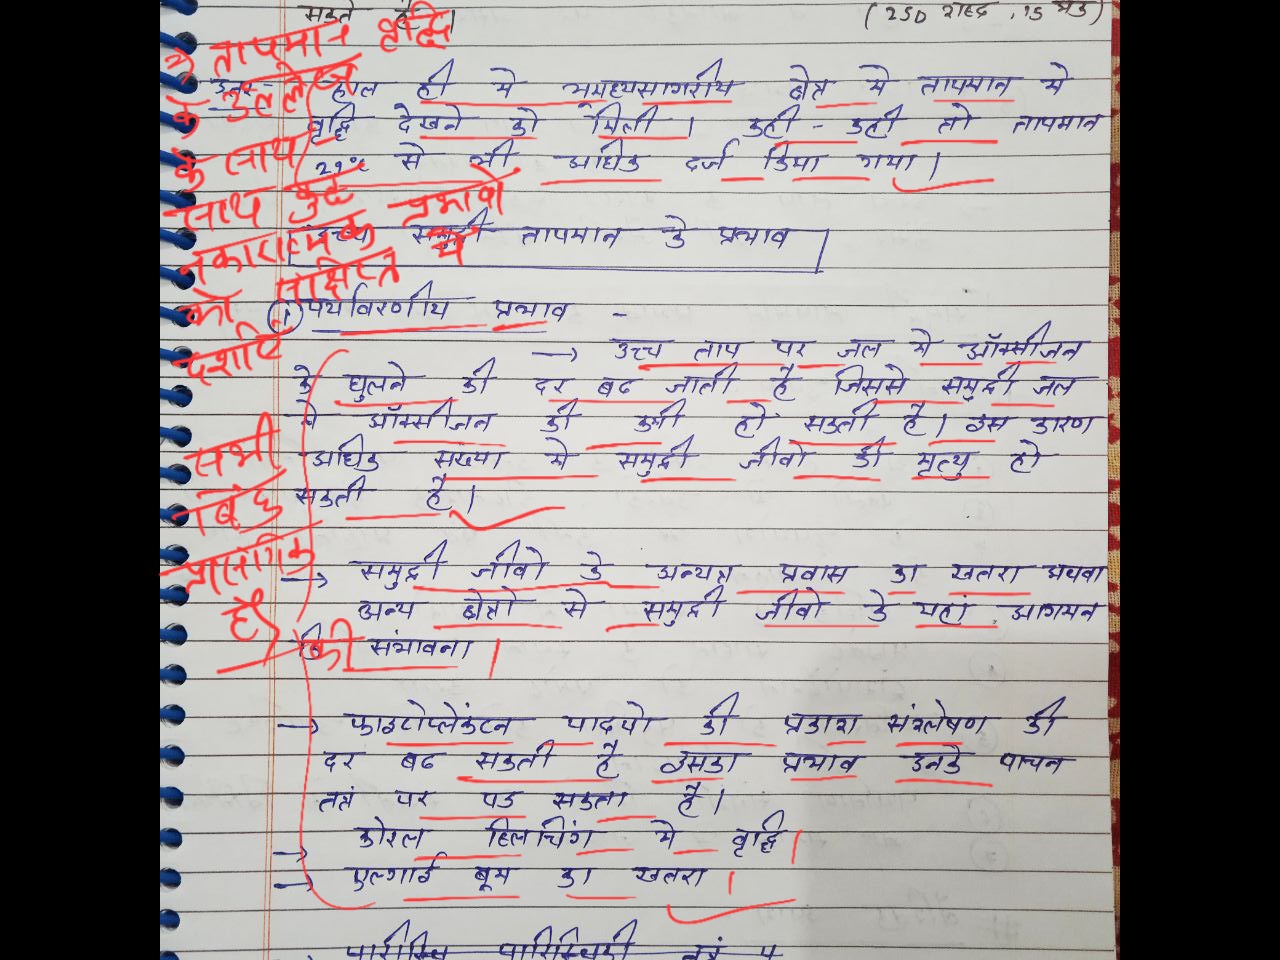 सकते हैं।
(250 शब्द, 15 अंक)
उत्तर- हाल ही में भूमध्यसागरीय क्षेत्र में तापमान में
वृद्धि देखने को मिली। कही-कही तो तापमान
से भी अधिक दर्ज किया गया।
उच्च समुद्री तापमान के प्रभाव
① पर्यावरणीय प्रभाव -
→ उच्च ताप पर जल मे ऑक्सीजन
के घुलने की दर बढ जाती है जिससे समुद्री जल
मे ऑक्सीजन की कमी हो सकती है। इस कारण
अधिक संख्या मे समुद्री जीवो की मृत्यु हो
सकती है।
→ समुद्री जीवो के अन्यत्र प्रवास का खतरा अथवा
अन्य क्षेत्रो से समुद्री जीवो के यहां आगमन
की संभावना।
→ फाइटोप्लेंकटन पादपो की प्रकाश संश्लेषण की
दर बढ सकती है इसका प्रभाव उनके पाचन
तत्रं पर पड सकता है।
→ कोरल ब्लिचिंग मे वृद्धि।
→ एल्गाई बूम का खतरा।
पारिस्थि पारिस्थिकी तत्रं प
तापमान वृद्धि
के उल्लेख
के साथ
साथ कुछ
नकारात्मक प्रभावो
को संक्षिप्त में
दर्शाएं
सभी
बिंदु
प्रासंगिक
हैं